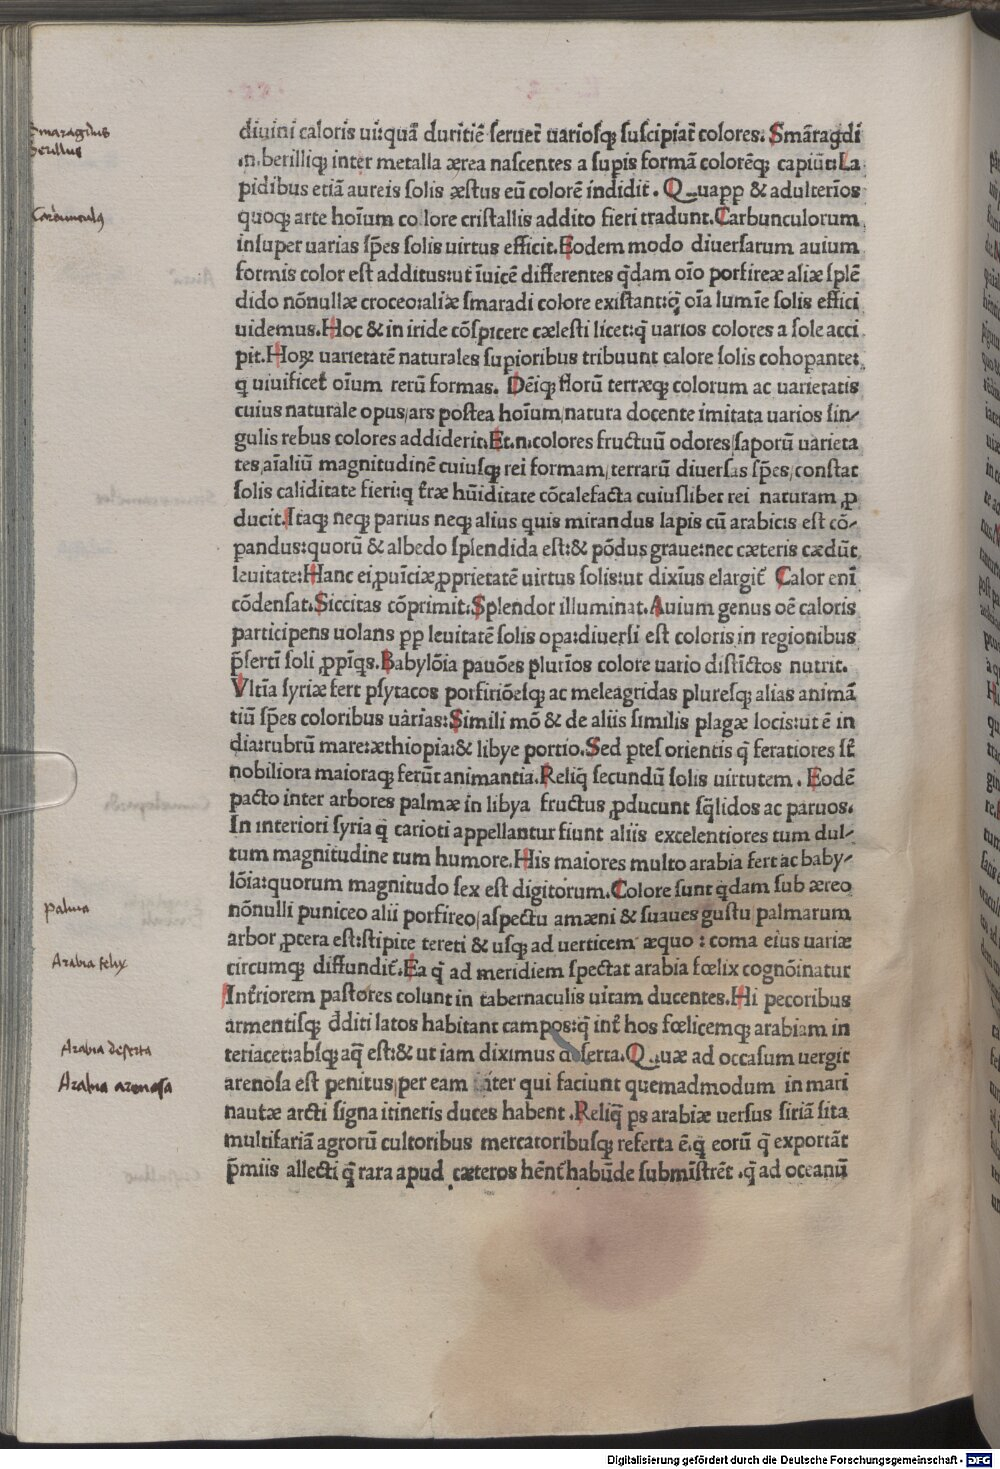 Smaragdus
berillus
diuini caloris ui:quā duritiē seruet uariosq; suscipiat colores. Smāragdi
.n.berilliq; inter metalla ærea nascentes a supis formā colorēq; capiūt:La
pidibus etiā aureis solis æstus eū colorē indidit. Quapp & adulterīos
Carbunculus
quoq; arte hoīum collore cristallis addito fieri tradunt.Carbunculorum
insuper uarias sp̄es solis uirtus efficit.Eodem modo diuersarum auium
formis color est additus:ut īuicē differentes q̄dam oīo porfireæ aliæ splē
dido nōnullæ croceo:aliæ smaradi colore existant:q̄ oīa lumīe solis effici
uidemus.Hoc & in iride cōspicere cælesti licet:q̄ uarios colores a sole acci
pit.Hoꝝ uarietatē naturales supioribus tribuunt calore solis cohopante:
q uiuificet oīum rerū formas. Dēiq; florū terræq; colorum ac uarietatis
cuius naturale opus/ars postea hoīum/natura docente imitata uarios sin-
gulis rebus colores addiderit.Et.n.colores fructuū odores/saporū uarieta
tes,aīaliū magnitudinē cuiusq; rei formam/terrarū diuersas sp̄es/constat
solis caliditate fieri:q t̄ræ hūiditate cōcalefacta cuiuslibet rei naturam ꝓ
ducit.Itaq; neq; parius neq; alius quis mirandus lapis cū arabicis est cō-
pandus:quorū & albedo splendida est:& pōdus graue:nec cæteris cædūt
leuitate:Hanc ei,puīciæ,ꝓprietatē uirtus solis:ut dixīus elargit̄ Calor enī
cōdensat.Siccitas cōprimit.Splendor illuminat.Auium genus oē caloris
participens uolans pp leuitatē solis opa:diuersi est coloris in regionibus
p̄sertī soli ꝓpīqs.Babylōia pauōes plurīos colore uario distīctos nutrit.
Vltīa syriæ fert psytacos porfiriōesq; ac meleagridas pluresq; alias animā
tiū sp̄es coloribus uārias:Simili mō & de aliis similis plagæ locis:ut ē in
dia:rubrū mare:æthiopia:& libye portio.Sed ptes orientis q̄ feratiores st̄
nobiliora maioraq; ferūt animantia.Reliq̄ secundū solis uirtutem. Eodē
pacto inter arbores palmæ in libya fructus ꝓducunt sq̄lidos ac paruos.
In interiori syria q̄ carioti appellantur fiunt aliis excelentiores tum dul-
tum magnitudine tum humore.His maiores multo arabia fert ac baby-
lōia:quorum magnitudo sex est digitorum.Colore sunt q̄dam sub æreo
Palma
nōnulli puniceo alii porfireo/aspectu amæni & suaues gustu/palmarum
arbor ꝓcera est:stipite tereti & usq; ad uerticem æquo : coma eius uariæ
Arabia felix
circumq; diffundit̄.Ea q̄ ad meridiem spectat arabia fœlix cognōinatur
Int̄riorem pastores colunt in tabernaculis uitam ducentes.Hi pecoribus
armentisq; dditi latos habitant campos:q̄ int̄ hos fœlicemq; arabiam in
Arabia deserta
teriacet:absq; aq̄ est:& ut iam diximus deserta.Quæ ad occasum uergit
Arabia arenosa
arenosa est penitus/per eam inter qui faciunt quemadmodum in mari
nautæ arcti signa itineris duces habent.Reliq̄ ps arabiæ uersus siriā sita
multifariā agrorū cultoribus mercatoribusq; referta ē.q̄ eorū q̄ exportāt
p̄miis allecti q̄ rara apud cæteros hēnt̄ habūde submīstrēt.q̄ ad oceanū
Digitalisierung gefördert durch die Deutsche Forschungsgemeinschaft - DFG